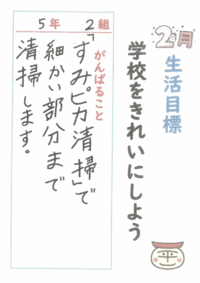 2月
生活目標
学校をきれいにしよう
5年 2組
がんばること
「すみピカ清掃」で
細かい部分まで
清掃します。